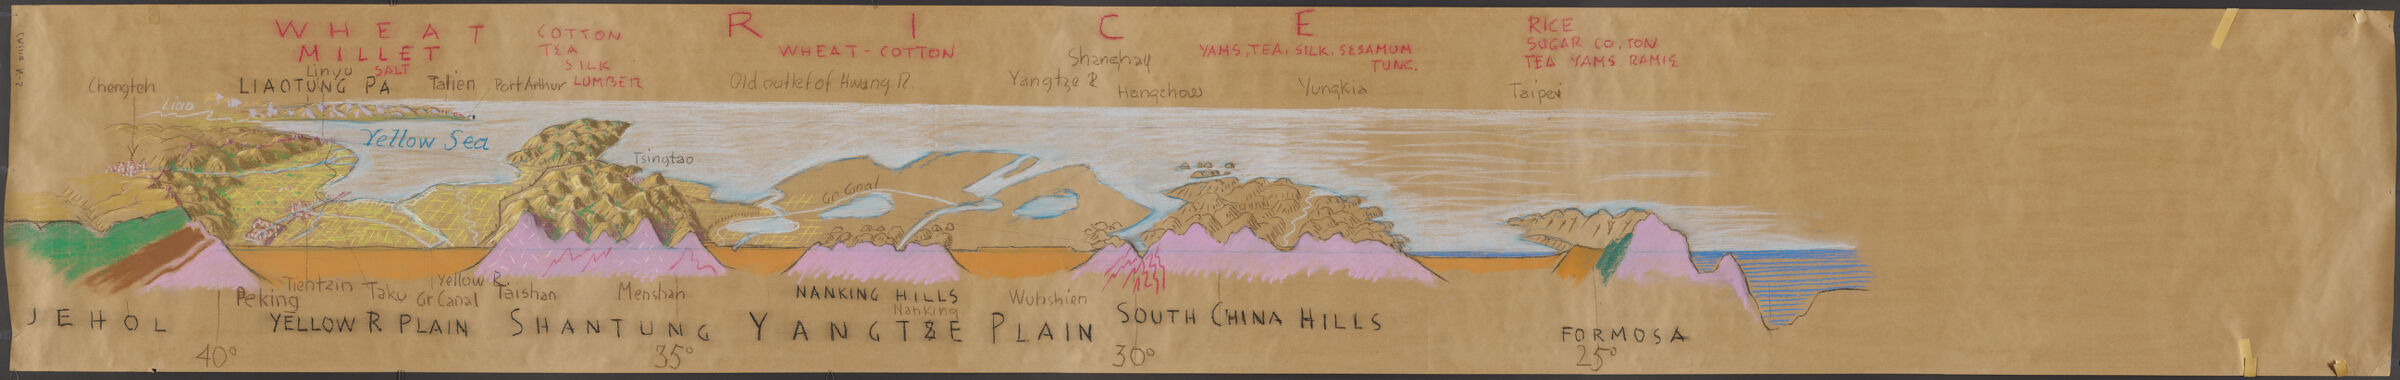 WHEAT
MILLET
SALT
COTTON
TEA
SILK
LUMBER
RICE
WHEAT-COTTON
YAMS, TEA, SILK, SESAMUM
TUNG.
RICE
SUGAR CO,TON
TEA YAMS RAMIE
Chengteh
Linyu
LIAOTUNG PA
Talien
Port Arthur
Old outlet of Hwang R.
Shanghay
Yangtze R
Hangchow
Yungkia
Taipei
Liao
Yellow Sea
Tsingtao
Gr Cnal
Peking
Tientzin
Taku
Yellow R
Gr Canal
Taishan
Menshan
NANKING HILLS
Nanking
Wuhshien
JEHOL
YELLOW R PLAIN
SHANTUNG
YANGTZE PLAIN
SOUTH CHINA HILLS
FORMOSA
40°
35°
30°
25°